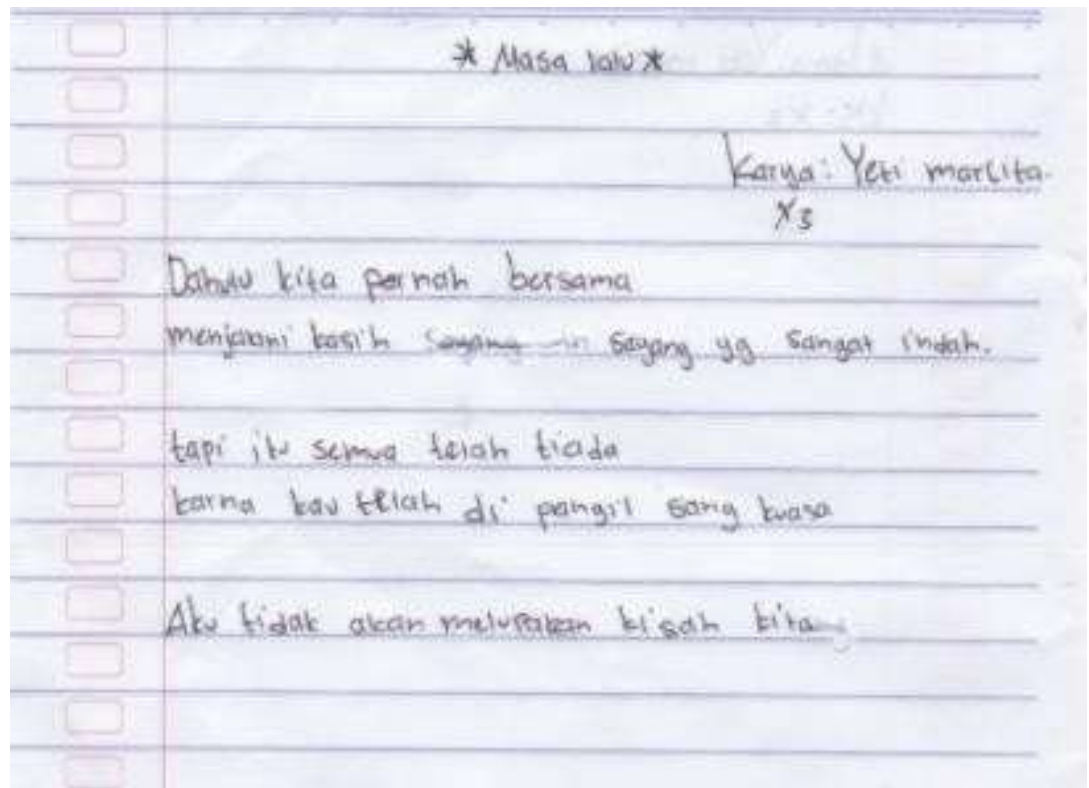 * Masa lalu *
Karya: Yeti marlita.
X3
Dahulu kita pernah bersama
menjalani kasih sayang yg sangat indah.
tapi itu semua telah tiada
karna kau telah di pangil sang kuasa
Aku tidak akan melupakan kisah kita